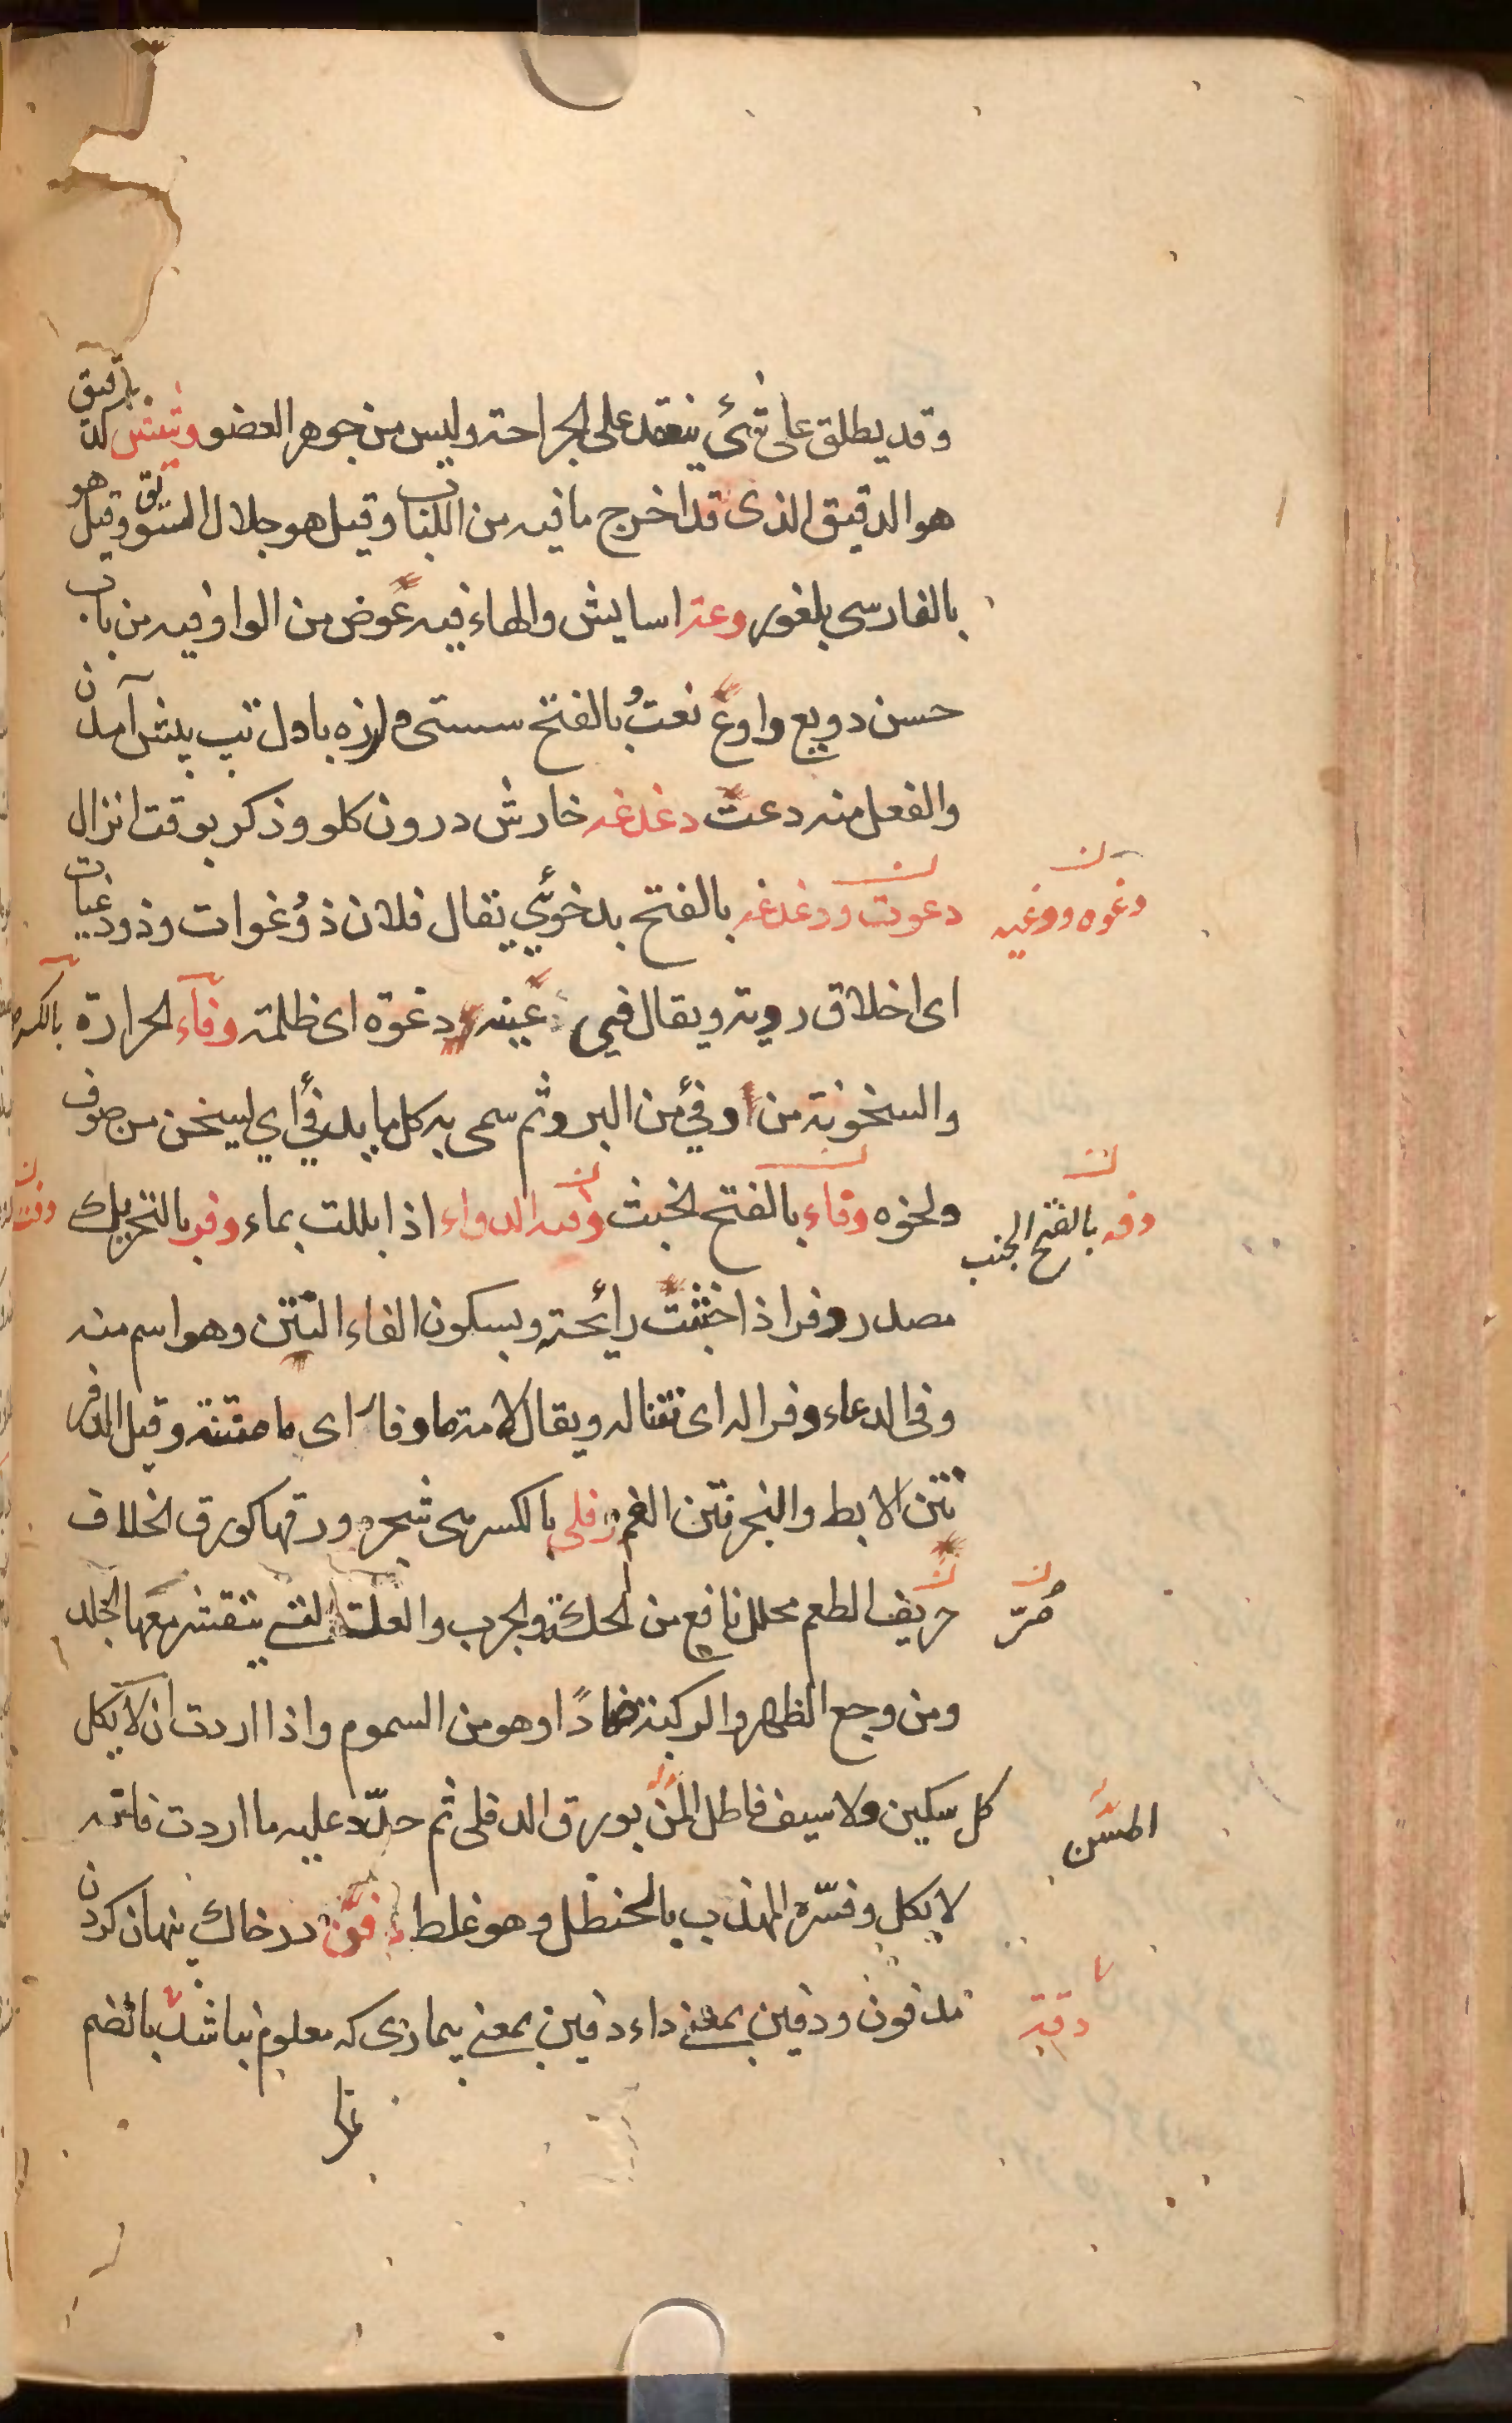 وقد يطلق على شئ ينعقد على الجراحة وليس من جوهر العضو
هو الدقيق الذى قد اخرج ما فيه من اللباب وقيل هو جلال السويق وقيل هو
بالفارسى بلغور دعة اسايش والهاء فيه عوض من الواو فيه من باب
حسن دويع وادع نعت بالفتح سستى ولرزه باول تب پيش آمدن
والفعل منه دعت دغدغه خارش درون كلو وذكر بوقت انزال
دغوه ودغيه
دعوت ودغدغه بالفتح بدخوئى يقال فلان ذو دغوات وذو دغيات
اى اخلاق ردية ويقال فى عينه دغوة اى ظلمة دفاء الحرارة بالكسر
والسخونة من دفئ من البرد ثم سمى به كل ما يدفئ اي ليسخن من صوف
دفه بالفتح الجنب
ونحوه دفاء بالفتح لخبث الدواء اذا بللت بماء دفر بالتحريك
مصدر دفر اذا خبثت رائحته وبسكون الفاء النتن وهو اسم منه
وفى الدعاء دفرا له اى نتنا له ويقال لامة ما دفار اى ما منتنة وقيل الدفر
نتن الابط والبخر نتن الفم دفلى بالكسر هى شجره ورقها كورق الخلاف
مُرّ
حريف الطعم محلل نافع من الحكة والجرب والعلة التى يتقشر معها الجلد
ومن وجع الظهر والركبة ضمادًا وهو من السموم واذا اردت ان لا يكل
المسَّن
كل سكين ولا سيف فاطل المسن بورق الدفلى ثم حدّد عليه ما اردت فانه
لا يكل وفسّره المهذب بالحنظل وهو غلط دفن در خاك پنهان كردن
دقة
مدفون ودفين بمعنى داء دفين بمعنى بيمارى كه معلوم نباشد بالضم